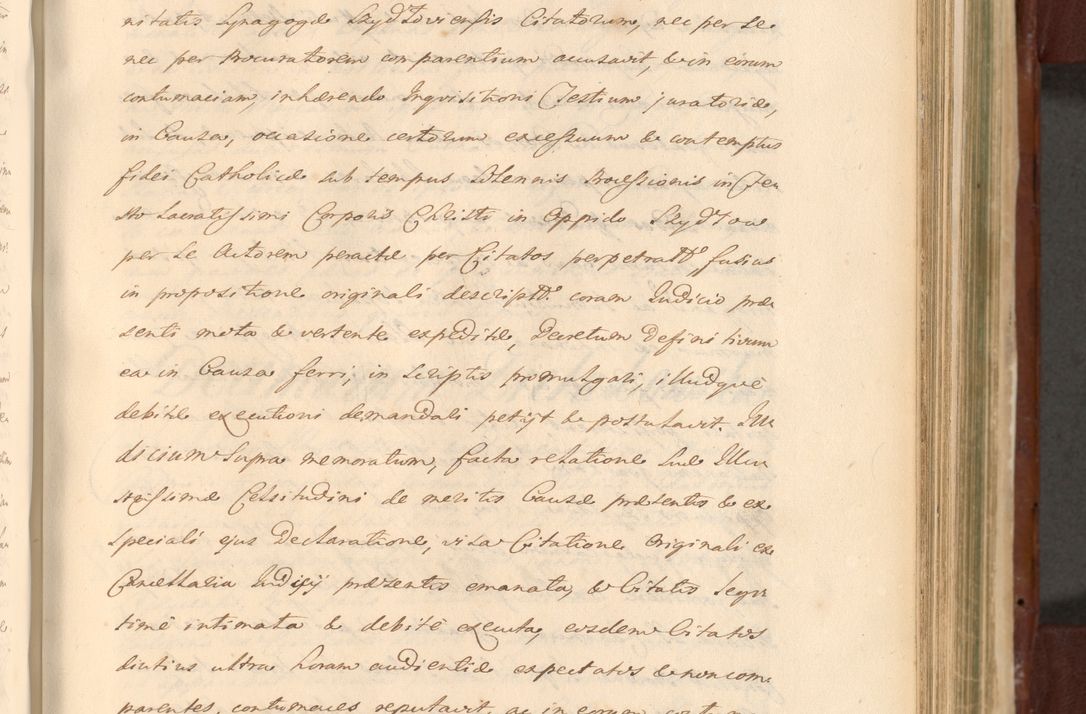 nitatis Synagogæ Szydłoviensis Citatorum, nec per se
nec per Procuratorem comparentium accusavit, & in eorum
contumaciam, inhærendo Inqvisitioni Testium juratoriæ,
in Causa, occasione certorum excessuum & contemptus
fidei Catholicæ sub tempus Solennis Processionis in Fe
sto Sacratissimi Corporis Christi in Oppido Szydłow
per se Actorem peractæ per Citatos perpetratt: fusius
in propositione originali descriptt: coram Iudicio præ
senti mota & vertente expedite, Decretum Definitivum
ea in Causa ferri, in scriptis promulgari, illudqve
debitæ executioni demandari petijt & postulavit. Iu
dicium Supra memoratum, facta relatione Suæ Illu
strissimæ Celsitudini de meritis Causæ præsentis & ex
speciali ejus Declaratione, visa Citatione Originali ex
Cancellaria Iudicij præsentis emanata, & Citatis legi
time intimata & debite executa, eosdem Citatos
diutius ultra horam audientiæ expectatos & non com
parentes, contumaces reputavit, ac in eorum